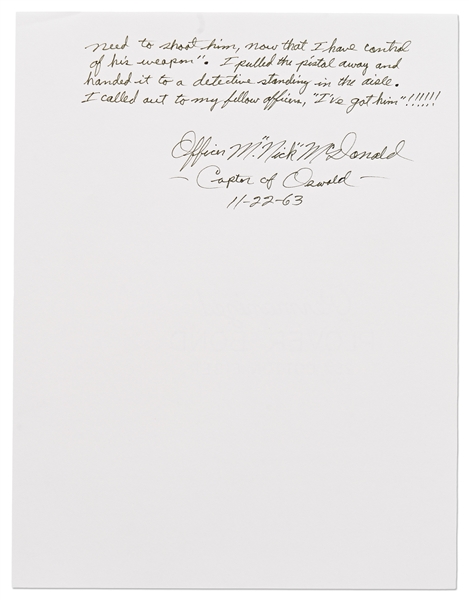 need to shoot him, now that I have control
of his weapon". I pulled the pistol away and
handed it to a detective standing in the aisle.
I called out to my fellow officers, "I've got him"!!!!!!
Officer M. "Nick" McDonald
- Captor of Oswald -
11-22-63